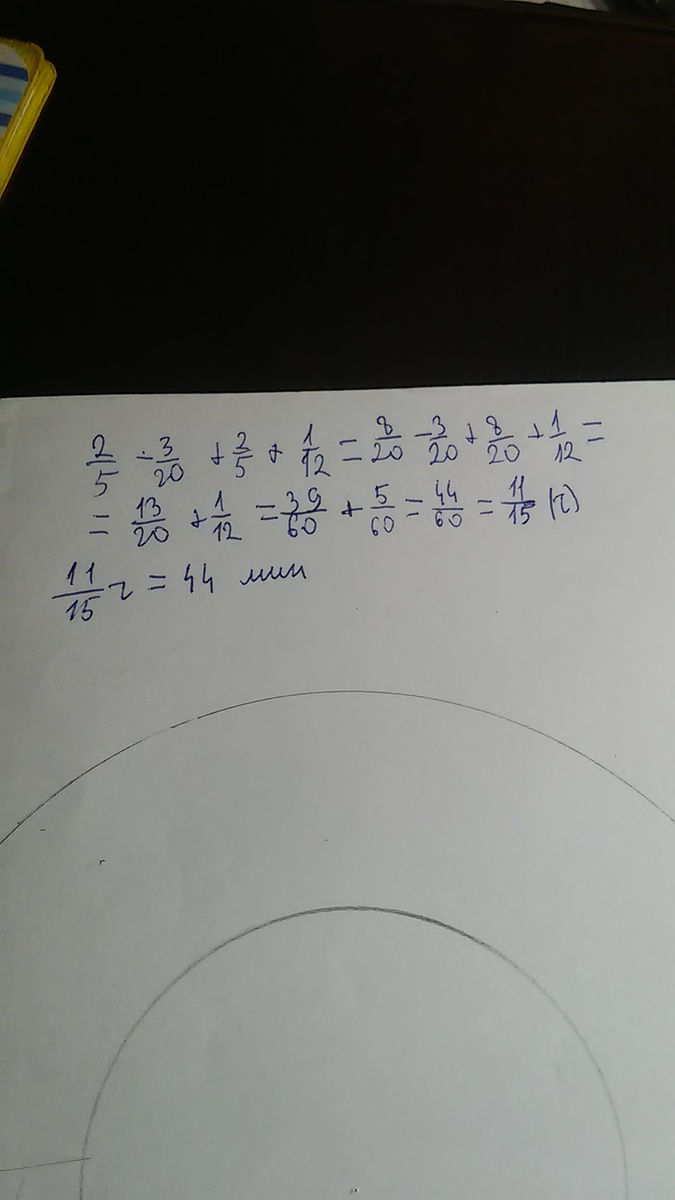 2/5 - 3/20 + 2/5 + 1/12 = 8/20 - 3/20 + 8/20 + 1/12 =
= 13/20 + 1/12 = 39/60 + 5/60 = 44/60 = 11/15 (ч)
11/15 ч = 44 мин